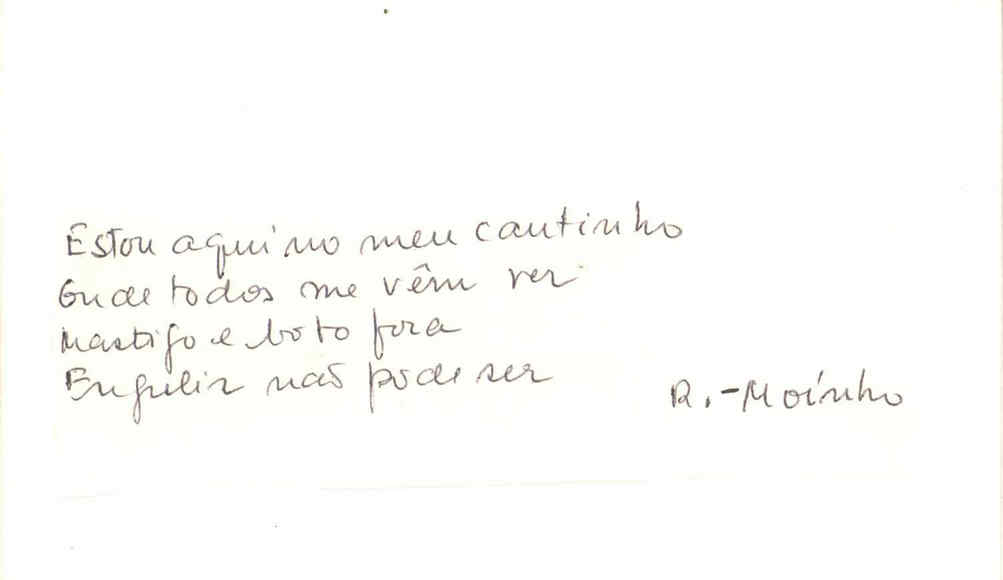 Estou aqui no meu cantinho
Onde todos me vêm ver
Mastigo e boto fora
Engulir não pode ser
R.-Moínho